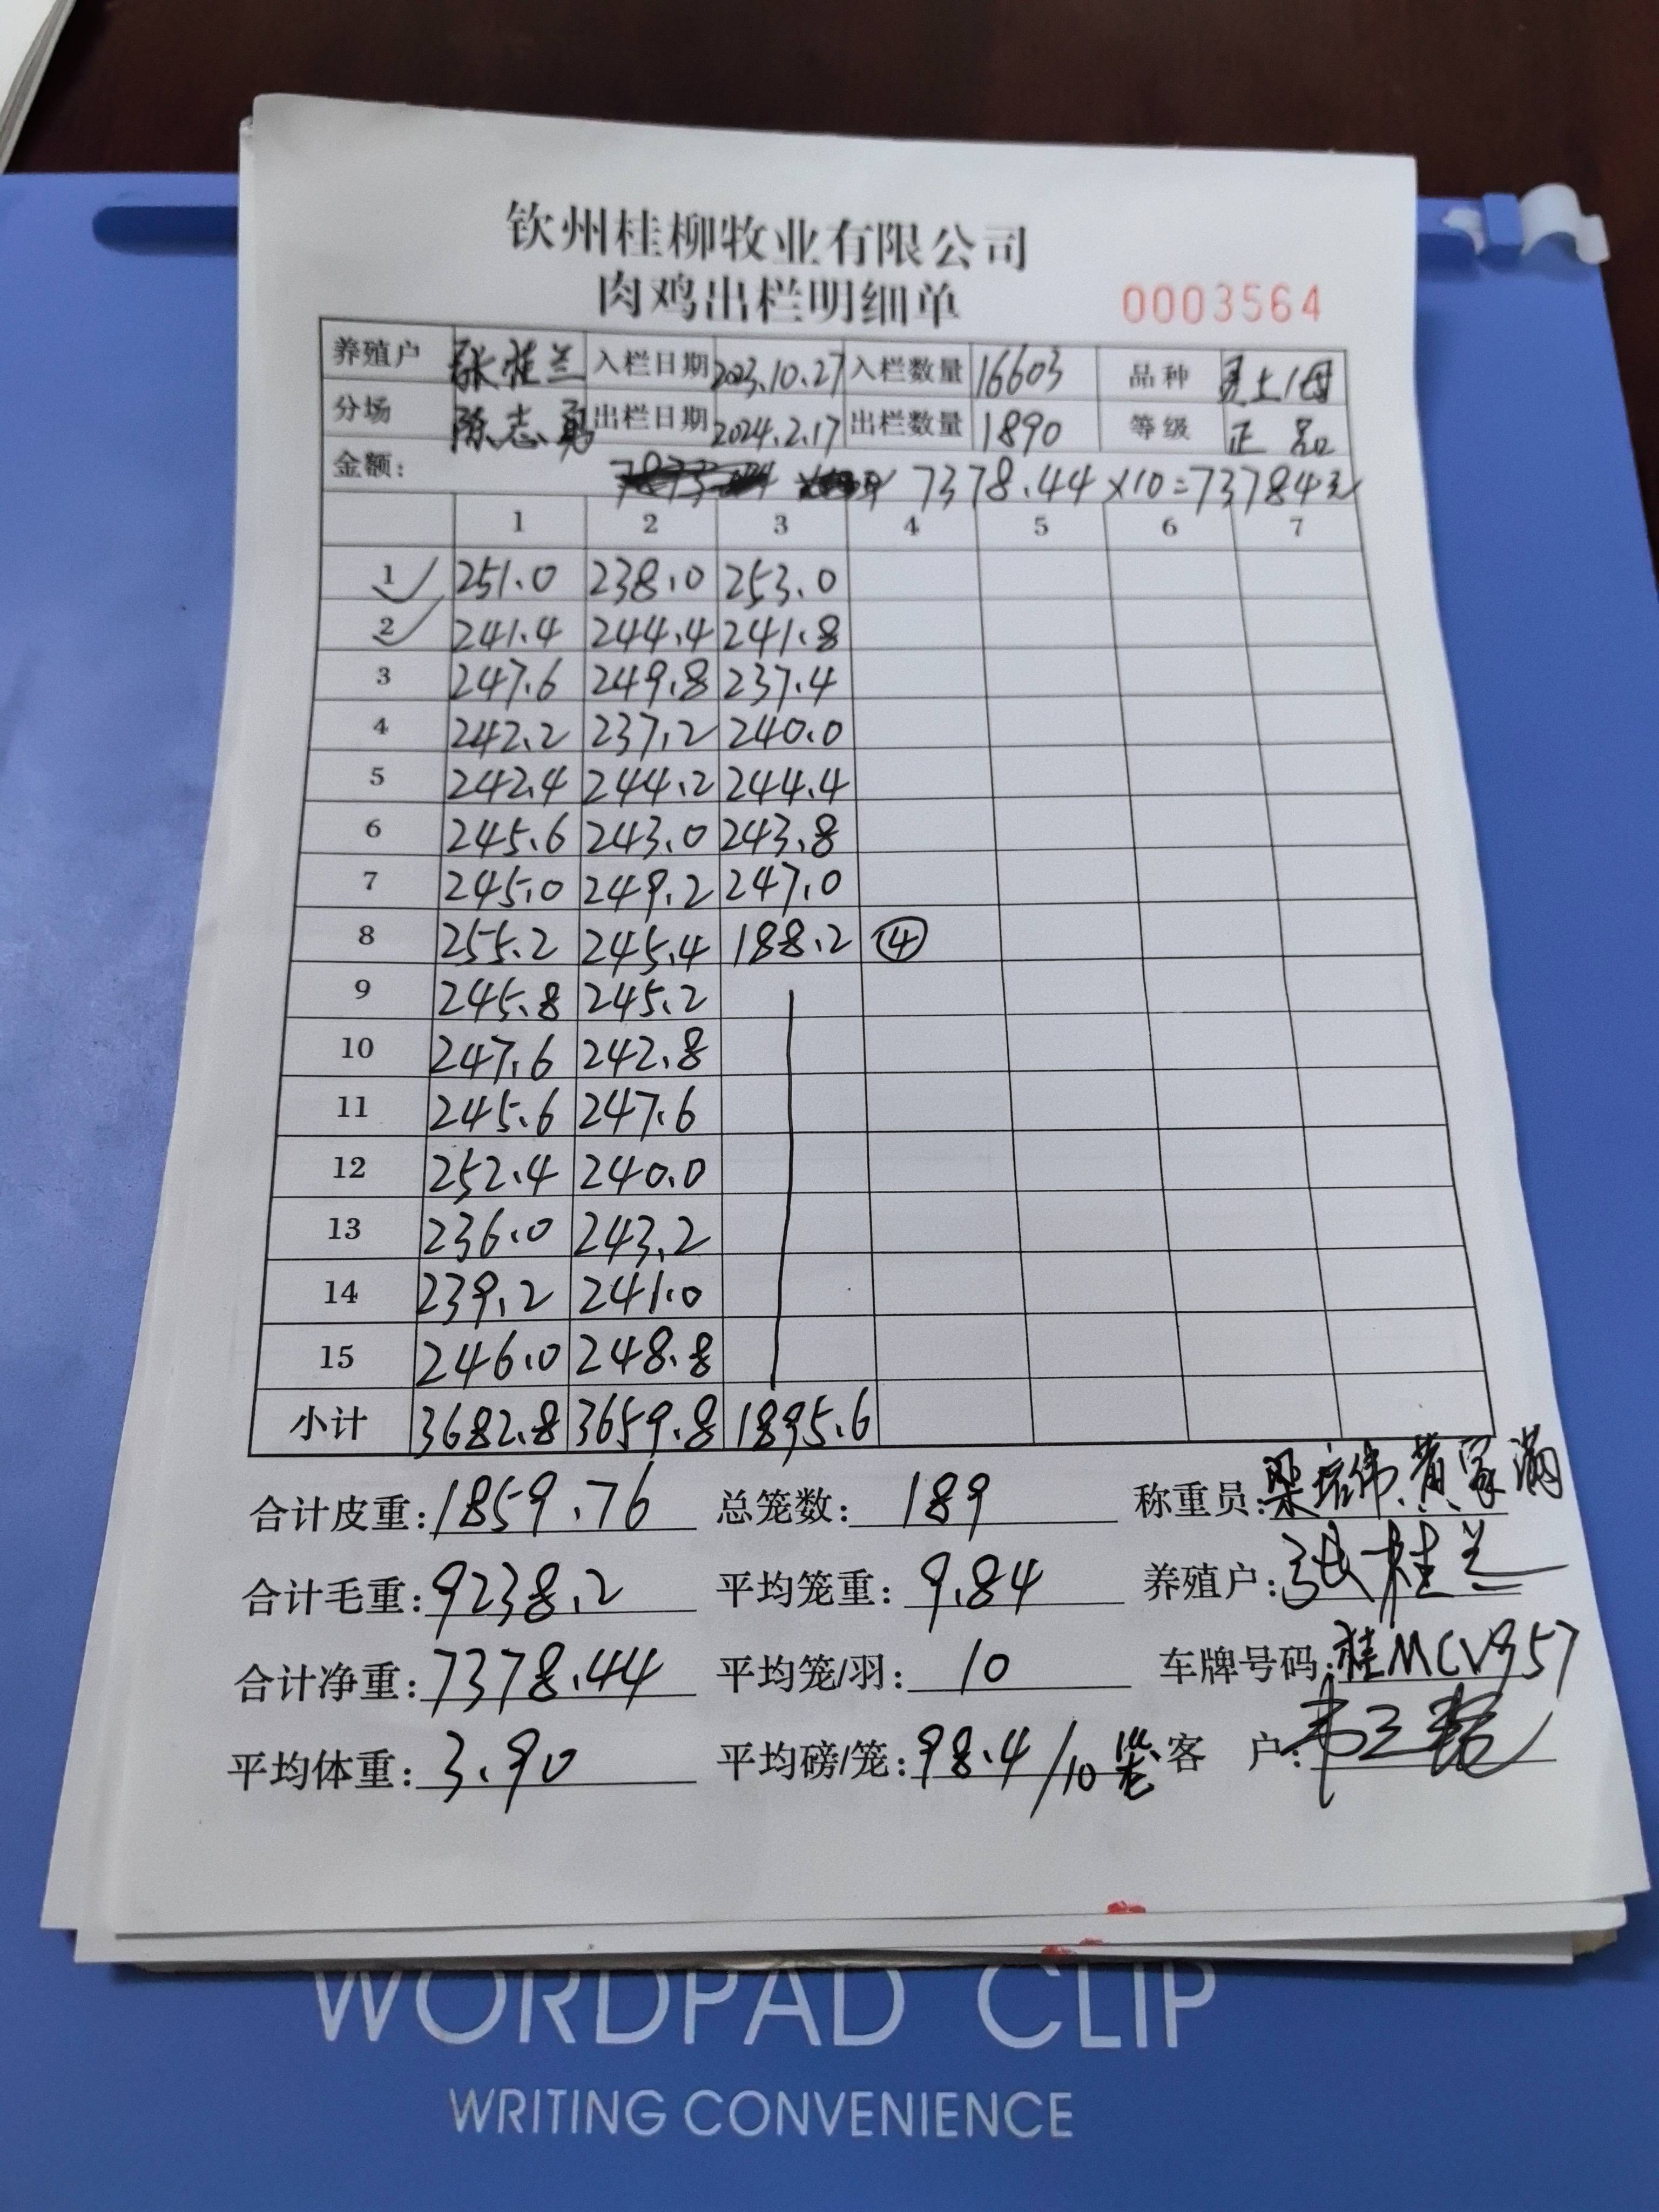 钦州桂柳牧业有限公司
肉鸡出栏明细单 0003564
养殖户 张桂兰 入栏日期 2023.10.27 入栏数量 16603 品种 土1母
分场 陈志勇 出栏日期 2024.2.17 出栏数量 1890 等级 正品
金额: 7378.44×10=73784元
1 2 3 4 5 6 7
1 251.0 238.0 253.0
2 241.4 244.4 241.8
3 247.6 249.8 237.4
4 242.2 237.2 240.0
5 242.4 244.2 244.4
6 245.6 243.0 243.8
7 245.0 249.2 247.0
8 255.2 245.4 188.2 ④
9 245.8 245.2
10 247.6 242.8
11 245.6 247.6
12 252.4 240.0
13 236.0 243.2
14 239.2 241.0
15 246.0 248.8
小计 3682.8 3659.8 1895.6
合计皮重: 1859.76 总笼数: 189 称重员: 梁培伟、黄家满
合计毛重: 9238.2 平均笼重: 9.84 养殖户: 张桂兰
合计净重: 7378.44 平均笼/羽: 10 车牌号码: 桂MCV957
平均体重: 3.90 平均磅/笼: 98.4/10笼 客 户:
WORDPAD CLIP
WRITING CONVENIENCE